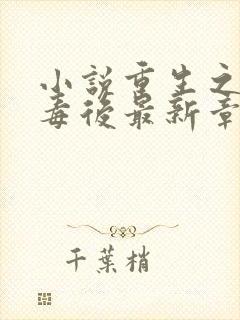 小説重生之
毒後最新章
千葉梢